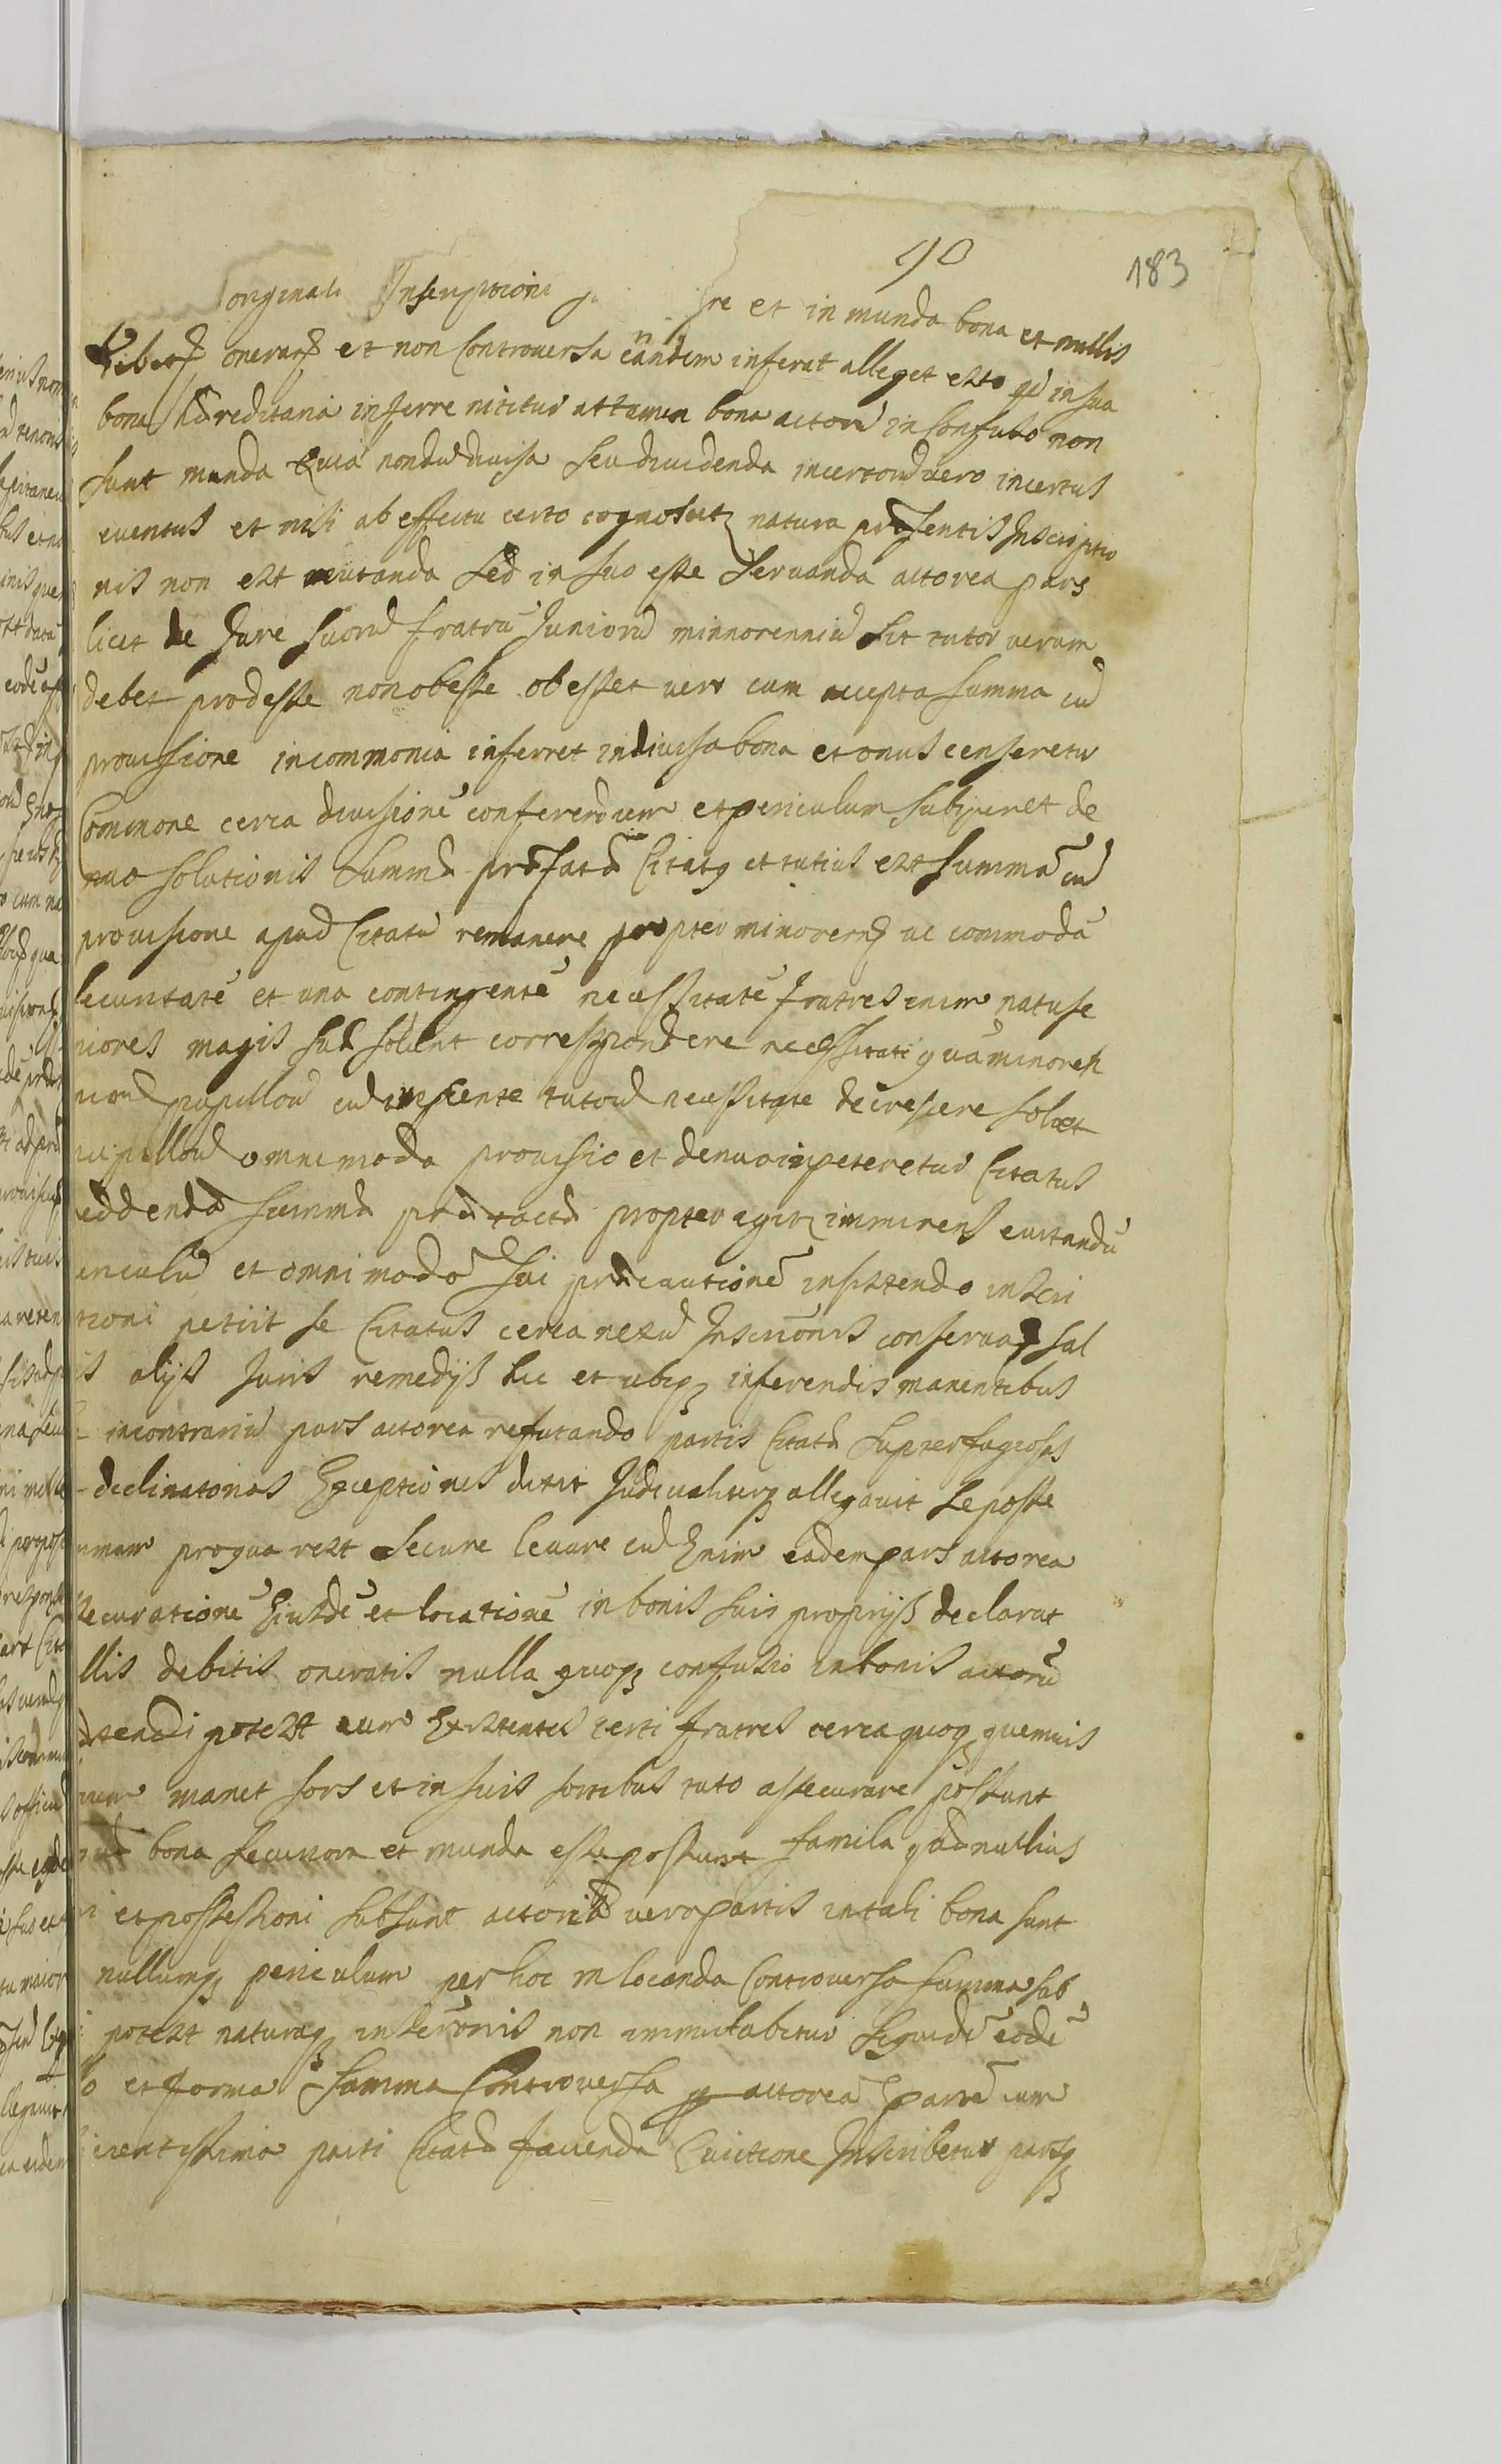 90
183
originali Inscriptioni re et in munda bona et nullis
debitis onerata et non Controversa eandem inferat alleget esto qd in sua
bona hæreditaria inferre nititur attamen bona actorũ in Confuso non
sunt munda Quia nondũ divisa seu dividenda incertorũ vero incertus
eventus et nisi ab effectu certo cognoscatz natura præsentis Inscriptio
nis non est mutanda sed in suo esse servanda actorea pars
licet de Jure suorũ fratrũ Juniorũ minnorenniũ sit tutor verum
debet prodesse non obesse obesset vero cum accepta summa cũ
provisione in commonia inferret indivisa bona et onus censeretur
Commone cerca divisionẽ conferendum et periculum subijceret de
nuo solutionis Summæ præfatæ Citatq et tutius est Summã cũ
provisione apud Citatũ remanere propter minorenq ac commodã
securitatẽ et una contingentẽ necessitatẽ fratres enim natu se
niores magis suæ solent correspondere necessitati quã minoren
niorũ pupillorũ cũ crescente tutorũ necessitate decrescere solet
pupillorũ omnimoda provisio et denuo inpeteretur Citatus
reddenda summa prætacta propter igitz imminens evitandũ
periculũ et omnimodã sui præcautionẽ insistendo inscri
tioni petiit se Citatus cerca nexũ Inscriõnis conservaq sal
is alijs Juris remedijs hic et ubiqz inferendis manentibus
incontrariũ pars actorea refutando partis Citatæ supterfugiosas
declinatorias Exceptiones dixit Judicialiterqz allegavit se posse
mmam pro qua rest secure levare cũ Enim eadem pars actorea
securationẽ Eiusdẽ et locationẽ in bonis suis proprijs declarat
llis debitis oneratis nulla quoqz confusio in bonis actorũ
ostendi potest cum Existentes certi fratres cerca quoqz quemvis
manet sors et in suis sortibus tuto assecurare possunt
bona securiora et munda esse possunt familia quã nullius
i et possessioni subsunt actoreæ vero partis in tali bona sunt
nullumqz periculum per hoc in locanda Controversa summa sub
i potest naturaqz inscriõnis non immutabitur siquidẽ eodẽ
o et forma Summa Controversa p actoreã partẽ cum
cientissima parti Citatæ favenda Evictione Inscribetur parsqz